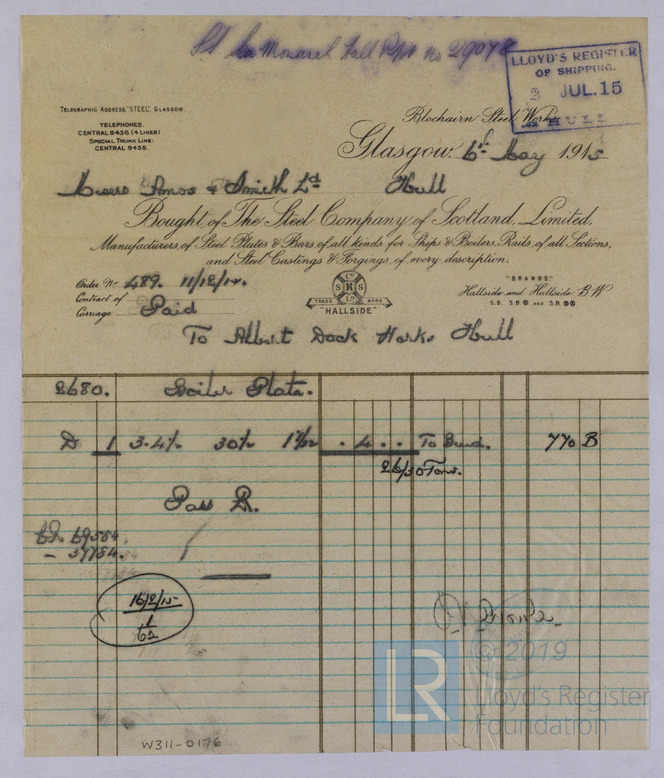 St Sr Monarch Hull Rpt no 29078
LLOYD'S REGISTER
OF SHIPPING.
2 JUL.15
HULL
TELEGRAPHIC ADDRESS, "STEEL", GLASGOW.
TELEPHONES.
CENTRAL 9436 (4 LINES)
SPECIAL TRUNK LINE:
CENTRAL 9435.
Blochairn Steel Works
Glasgow, 6th May 1915
Messrs Amos & Smith Ld Hull
Bought of The Steel Company of Scotland, Limited,
Manufacturers of Steel Plates & Bars of all kinds for Ships & Boilers, Rails of all Sections,
and Steel Castings & Forgings of every description.
Order No 489. 11/12/14.
Contract of
Carriage Paid
S Co S N S LD
TRADE MARK
"HALLSIDE"
"BRANDS"
Hallside and Hallside B.W
S.B. S.B and S.R
To Albert Dock Works Hull
2680. Boiler Plate.
D 1 3.4½ 30½ 1 4 To Bend. 770 B
26/30 Tons.
Pass D.
69584.
- 37754.
16/2/15
1
62
W311-0176
LR
© 2019
Lloyd's Register
Foundation